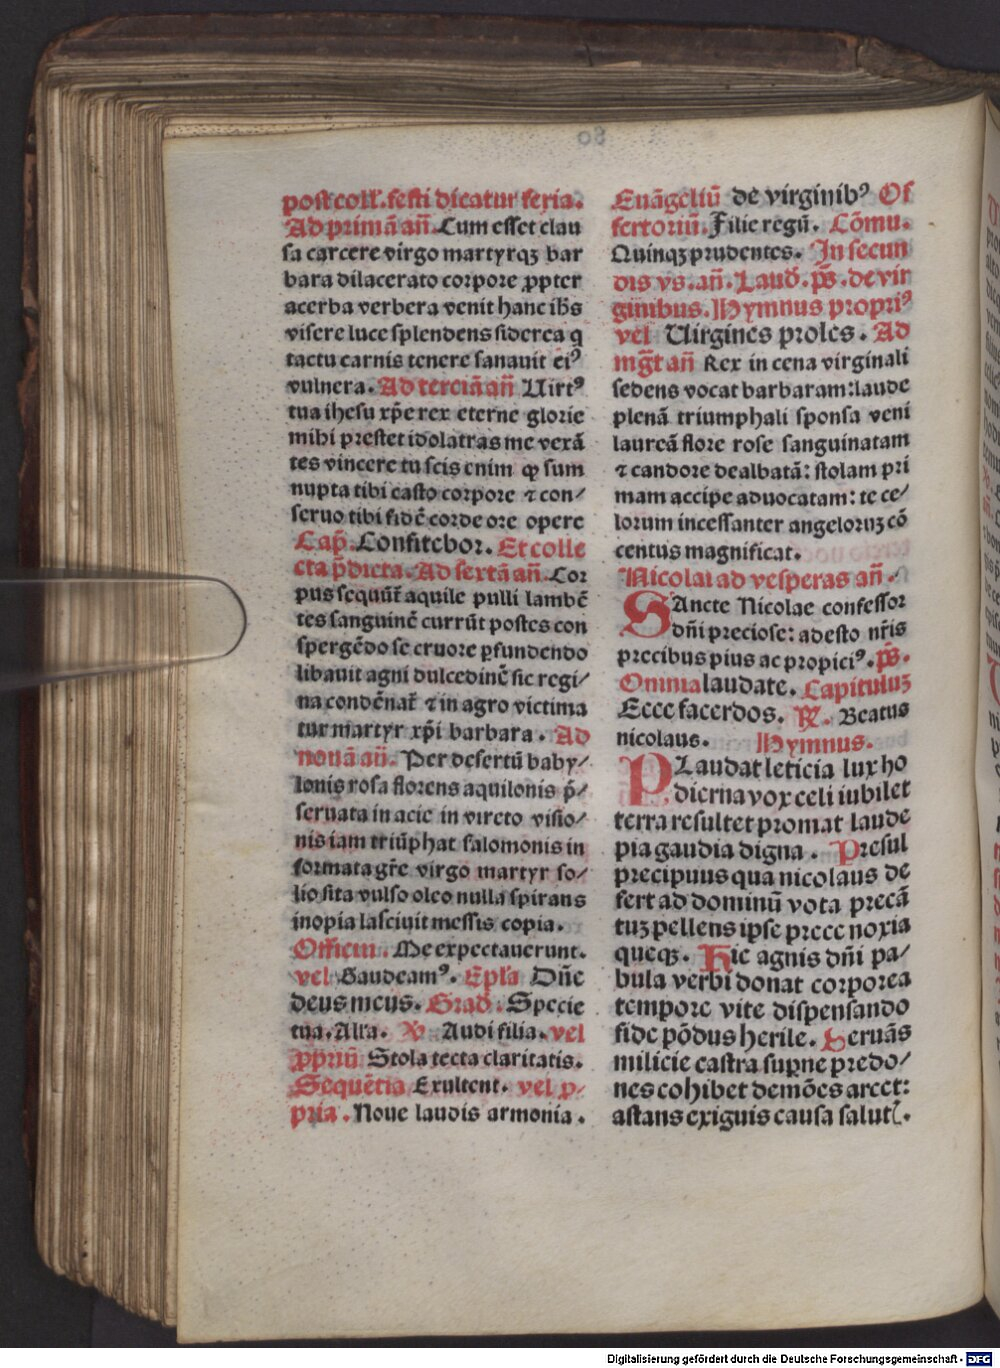 post coll'. festi dicatur feria.
Ad primā añ. Cum esset clau
sa carcere virgo martyrqꝫ bar
bara dilacerato corpore ꝓpter
acerba verbera venit hanc ih̄s
visere luce splendens siderea q
tactu carnis tenere sanauit eiꝰ
vulnera. Ad terciā añ Uirtꝰ
tua ihesu xp̄e rex eterne glorie
mihi prestet idolatras me vexā
tes vincere tu scis enim ꝙ sum
nupta tibi casto corpore ⁊ con⸗
seruo tibi fidē corde ore opere
Cap̄. Confitebor. Et colle
cta p̄dicta. Ad sextā añ. Cor
pus sequūt̄ aquile pulli lambē
tes sanguinē currūt postes con
spergēdo se cruore ꝑfundendo
libauit agni dulcedinē sic regi⸗
na condēnat̄ ⁊ in agro victima
tur martyr xp̄i barbara. Ad
nonā añ. Per desertū baby⸗
lonis rosa florens aquilonis p̄⸗
seruata in acie in vireto visio⸗
nis iam triūphat salomonis in
formata gr̄e virgo martyr so⸗
lio sita vulso oleo nulla spirans
inopia lasciuit messis copia.
Officiū. Me expectauerunt.
vel Gaudeamꝰ. Epl'a Dn̄e
deus meus. Grad̄. Specie
tua. Alla. ℣ Audi filia. vel
ꝓpriū Stola tecta claritatis.
Sequētia Exultent. vel ꝓ⸗
pria. Noue laudis armonia.
Euāgeliū de virginibꝰ Of
fertoriū. Filie regū. Cōmu.
Quinqꝫ prudentes. In secun
dis vs. añ. Laud̄. p̄s. de vir
ginibus. Hymnus propriꝰ
vel Uirgines proles. Ad
mḡt añ Rex in cena virginali
sedens vocat barbaram: laude
plenā triumphali sponsa veni
laureā flore rose sanguinatam
⁊ candore dealbatā: stolam pri
mam accipe aduocatam: te ce⸗
lorum incessanter angeloruꝫ cō
centus magnificat.
Nicolai ad vesperas añ.
SAncte Nicolae confessor
dn̄i preciose: adesto nr̄is
precibus pius ac propiciꝰ. p̄s.
Omnia laudate. Capituluꝫ
Ecce sacerdos. ℟. Beatus
nicolaus. Hymnus.
PLaudat leticia lux ho
dierna vox celi iubilet
terra resultet promat laude
pia gaudia digna. Presul
precipuus qua nicolaus de
fert ad dominū vota precā
tuꝫ pellens ipse prece noxia
queqꝫ. Hic agnis dn̄i pa⸗
bula verbi donat corporea
tempore vite dispensando
fide pōdus herile. Seruās
milicie castra suꝑne predo⸗
nes cohibet demōes arcet:
astans exiguis causa salutꝭ.
Digitalisierung gefördert durch die Deutsche Forschungsgemeinschaft - DFG